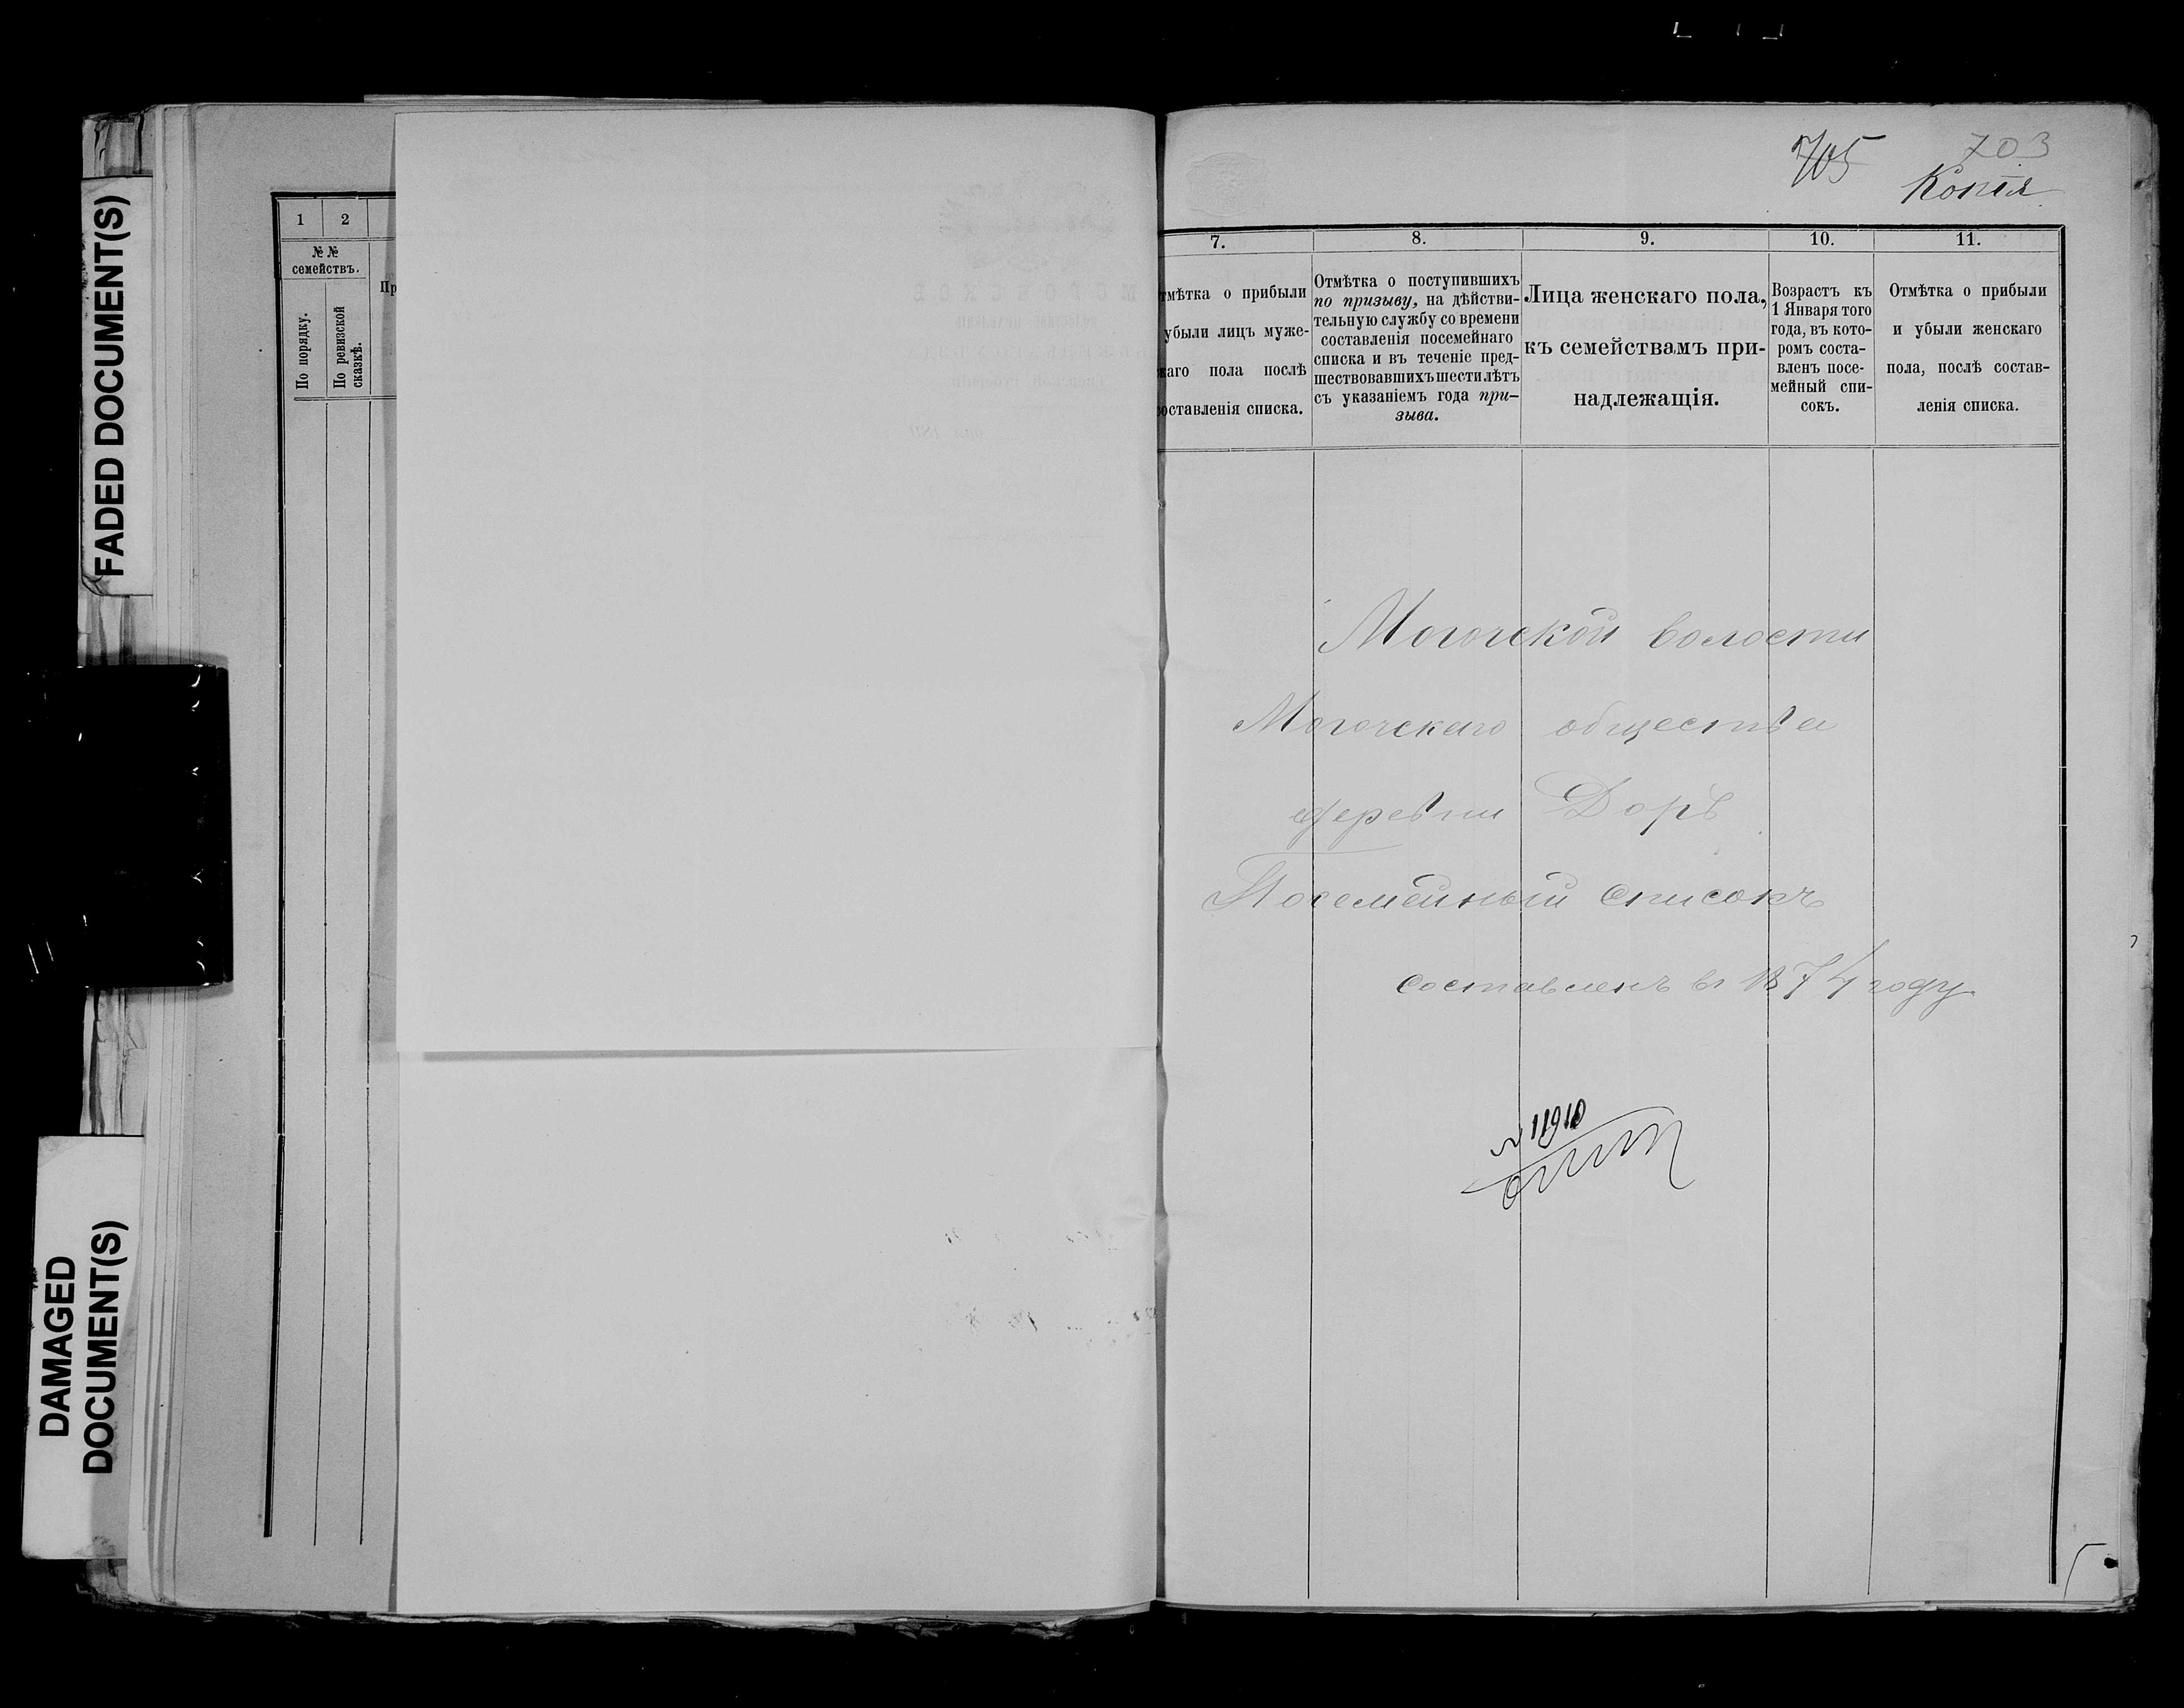 FADED DOCUMENT(S)
DAMAGED
DOCUMENT(S)
1 2
№ №
семействъ.
По порядку.
По ревизской
сказкѣ.
Пр
705 703
Копія
7. 8. 9. 10. 11.
тмѣтка о прибыли
убыли лицъ муже-
каго пола послѣ
оставленія списка.
Отмѣтка о поступившихъ
по призыву, на дѣйстви-
тельную службу со времени
составленія посемейнаго
списка и въ теченіе пред-
шествовавшихъ шести лѣтъ
съ указаніемъ года при-
зыва.
Лица женскаго пола,
къ семействамъ при-
надлежащія.
Возрастъ къ
1 Января того
года, въ кото-
ромъ соста-
вленъ посе-
мейный спи-
сокъ.
Отмѣтка о прибыли
и убыли женскаго
пола, послѣ состав-
ленія списка.
Могочской волости
Могочскаго общества
деревни Доръ
Посемейный списокъ
составленъ въ 1874 году